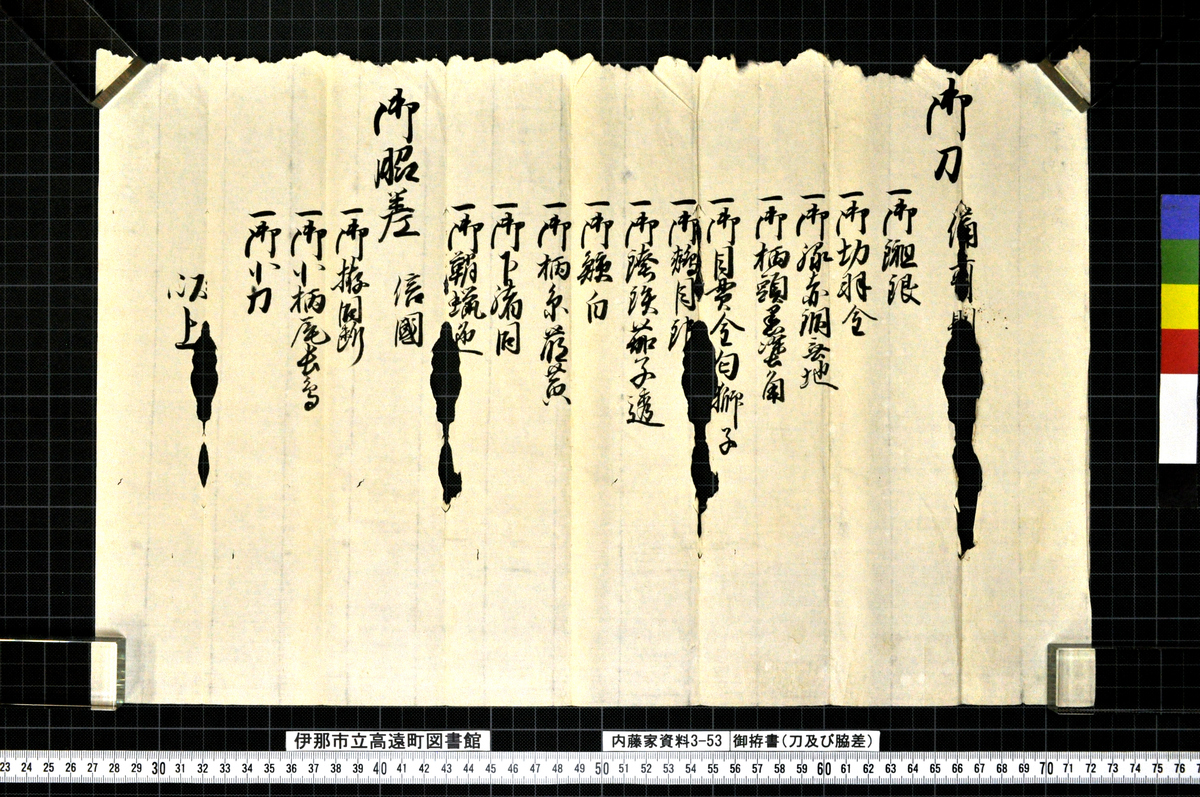 御刀
備前
一御鎺銀
一御切羽金
一御縁赤銅無地
一御柄頭黒塗角
一御目貫金匂獅子
一御鵐目銀
一御鍔鉄茄子透
一御鮫白
一御柄糸萌黄
一御下緒同
一御鞘蝋色
御脇差
信國
一御拵同断
一御小柄尾長鳥
一御小刀
以上
伊那市立高遠町図書館
内藤家資料3-53
御拵書(刀及び脇差)
23 24 25 26 27 28 29 30 31 32 33 34 35 36 37 38 39 40 41 42 43 44 45 46 47 48 49 50 51 52 53 54 55 56 57 58 59 60 61 62 63 64 65 66 67 68 69 70 71 72 73 74 75 76